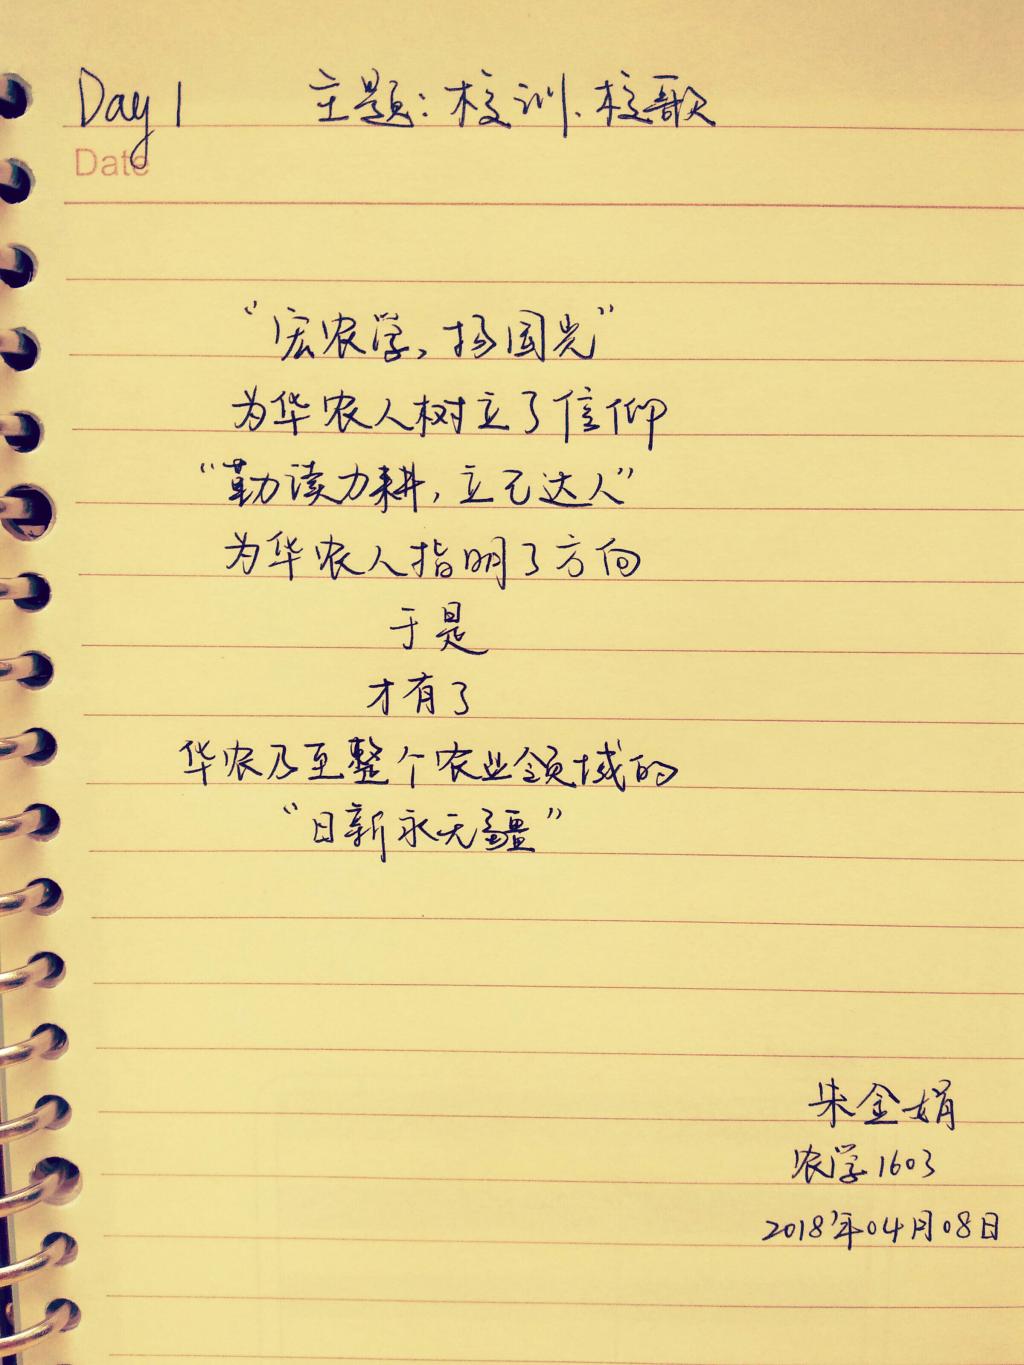 Day 1 主题：校训、校歌
Date
“宏农学，扬国光”
为华农人树立了信仰
“勤读力耕，立己达人”
为华农人指明了方向
于是
才有了
华农乃至整个农业领域的
“日新永无疆”
朱金娟
农学1603
2018年04月08日